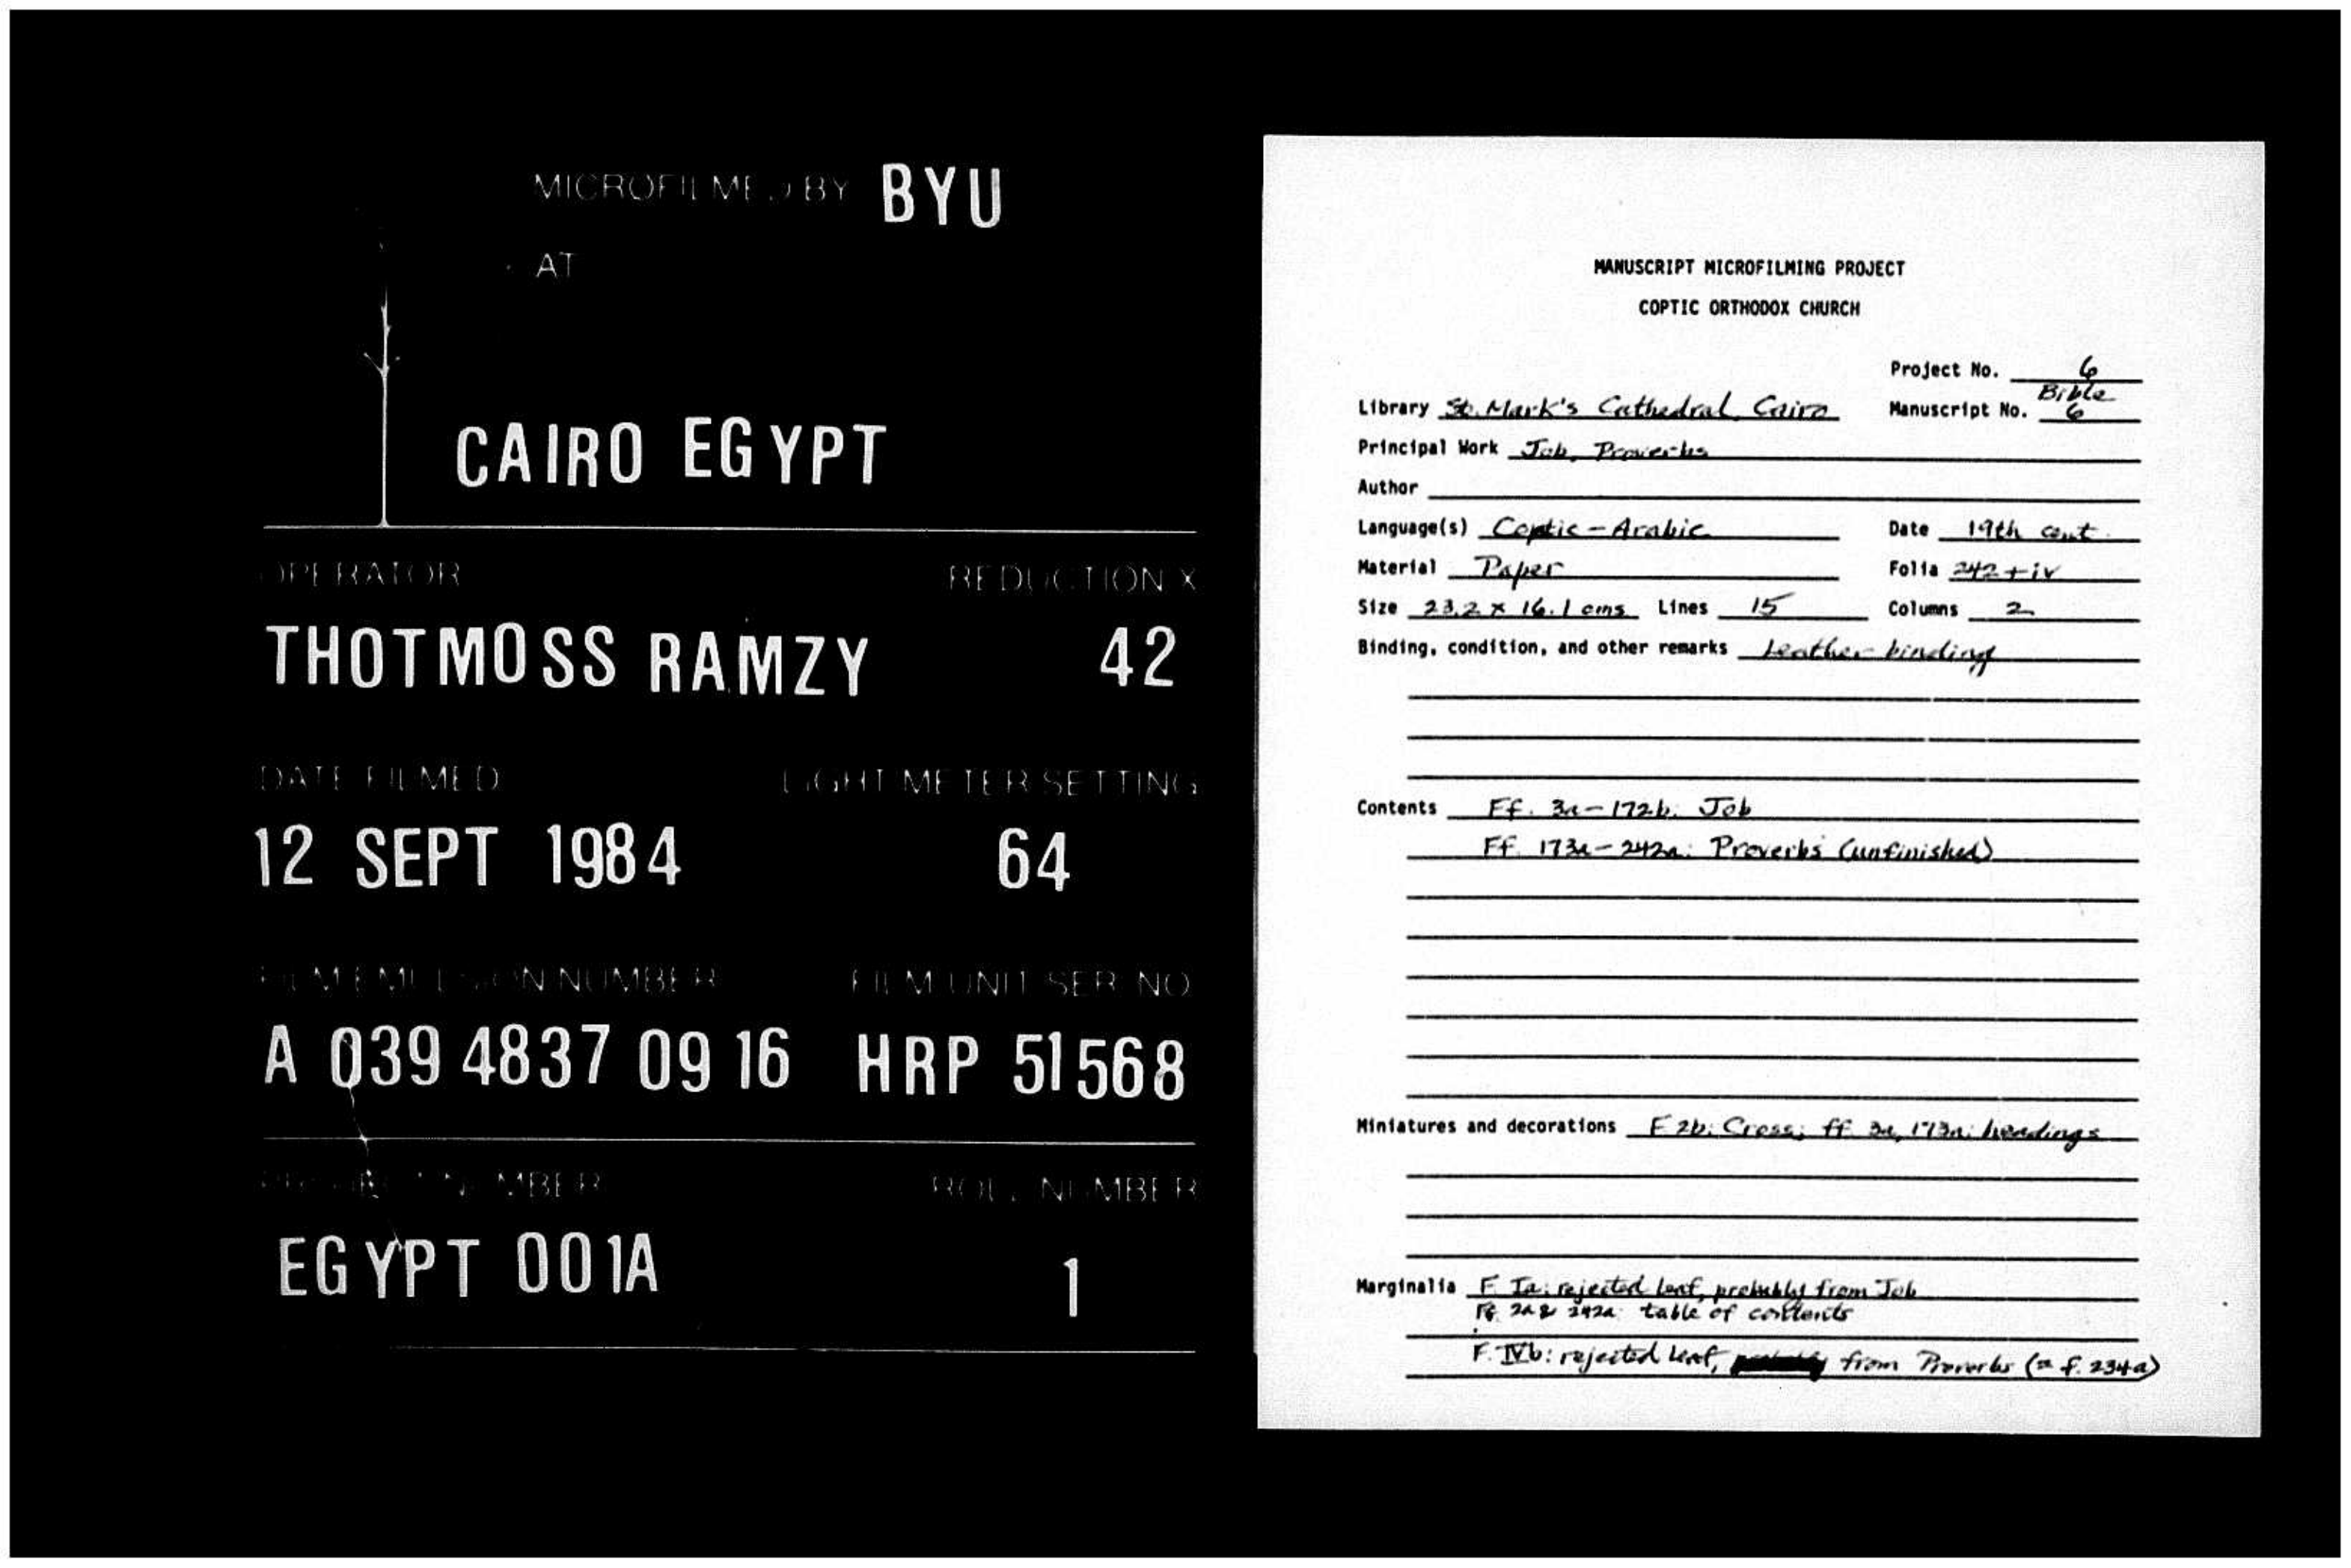 MICROFILMED BY BYU
AT
CAIRO EGYPT
OPERATOR REDUCTION X
THOTMOSS RAMZY 42
DATE FILMED LIGHT METER SETTING
12 SEPT 1984 64
FILM EMULSION NUMBER FILM UNIT SER NO
A 039 4837 09 16 HRP 51568
PROJECT NUMBER ROLL NUMBER
EGYPT 001A 1
MANUSCRIPT MICROFILMING PROJECT
COPTIC ORTHODOX CHURCH
Project No. 6
Library St. Mark's Cathedral, Cairo Manuscript No. Bible 6
Principal Work Job, Proverbs
Author
Language(s) Coptic - Arabic Date 19th cent.
Material Paper Folia 242 + iv
Size 23.2 x 16.1 cms Lines 15 Columns 2
Binding, condition, and other remarks Leather binding
Contents Ff. 3a-172b: Job
Ff. 173a-242a: Proverbs (unfinished)
Miniatures and decorations F 2b: Cross; ff. 3a, 173a: headings
Marginalia F. Ia: rejected leaf, probably from Job
Ff. 2a & 242a: table of contents
F. IVb: rejected leaf, from Proverbs (= f. 234a)